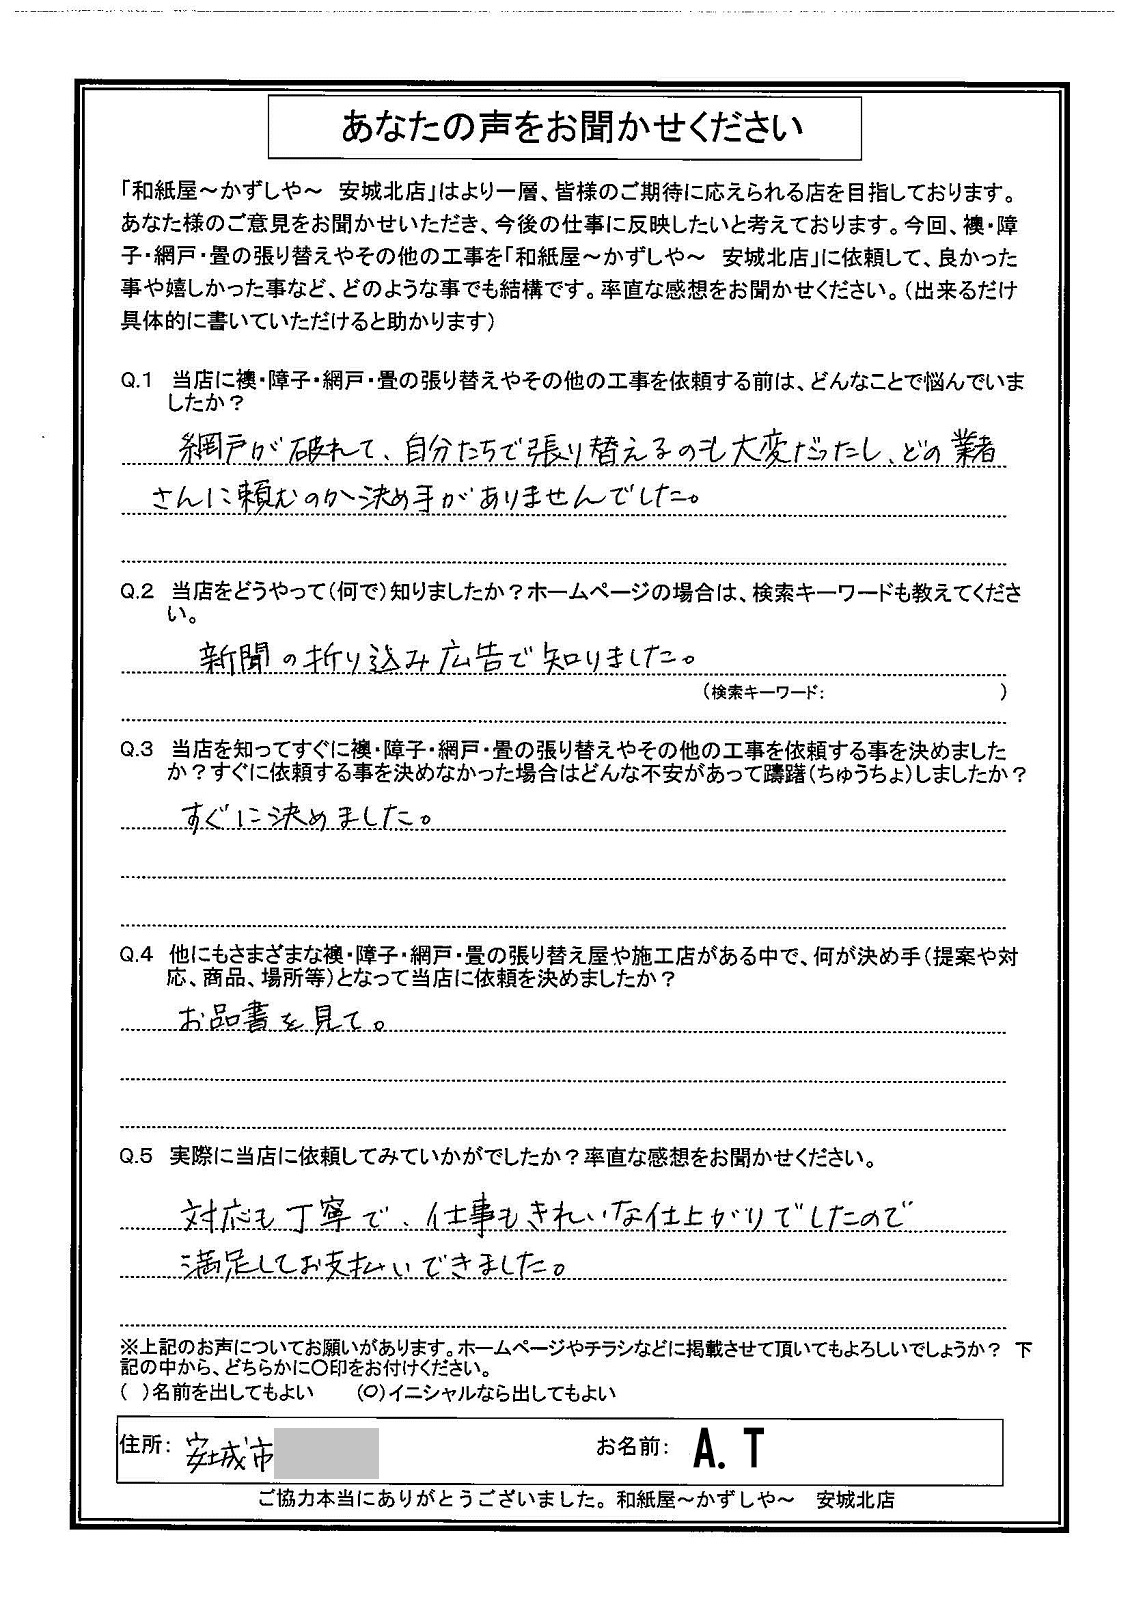 あなたの声をお聞かせください
「和紙屋～かずしや～　安城北店」はより一層、皆様のご期待に応えられる店を目指しております。
あなた様のご意見をお聞かせいただき、今後の仕事に反映したいと考えております。今回、襖・障
子・網戸・畳の張り替えやその他の工事を「和紙屋～かずしや～　安城北店」に依頼して、良かった
事や嬉しかった事など、どのような事でも結構です。率直な感想をお聞かせください。（出来るだけ
具体的に書いていただけると助かります）
Q.1　当店に襖・障子・網戸・畳の張り替えやその他の工事を依頼する前は、どんなことで悩んでいま
したか？
網戸が破れて、自分たちで張り替えるのも大変だったし、どの業者
さんに頼むのか決め手がありませんでした。
Q.2　当店をどうやって（何で）知りましたか？ホームページの場合は、検索キーワードも教えてくださ
い。
新聞の折り込み広告で知りました。
（検索キーワード：　　　　　　　　　　）
Q.3　当店を知ってすぐに襖・障子・網戸・畳の張り替えやその他の工事を依頼する事を決めました
か？すぐに依頼する事を決めなかった場合はどんな不安があって躊躇（ちゅうちょ）しましたか？
すぐに決めました。
Q.4　他にもさまざまな襖・障子・網戸・畳の張り替え屋や施工店がある中で、何が決め手（提案や対
応、商品、場所等）となって当店に依頼を決めましたか？
お品書を見て。
Q.5　実際に当店に依頼してみていかがでしたか？率直な感想をお聞かせください。
対応も丁寧で、仕事もきれいな仕上がりでしたので
満足してお支払いできました。
※上記のお声についてお願いがあります。ホームページやチラシなどに掲載させて頂いてもよろしいでしょうか？　下
記の中から、どちらかに〇印をお付けください。
（　）名前を出してもよい　　（○）イニシャルなら出してもよい
住所：安城市　　お名前：A.T
ご協力本当にありがとうございました。和紙屋～かずしや～　安城北店